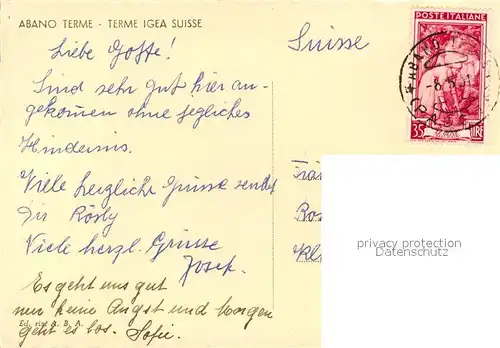 ABANO TERME - TERME IGEA SUISSE
Liebe Gotte!
Sind sehr gut hier an-
gekommen ohne jegliches
Hindernis.
Viele herzliche Grüsse sendet
Dir Rösly
Viele herzl. Grüsse
Josef.
Es geht uns gut
nur keine Angst und Morgen
geht es los. Sofie.
Ed. A. B. A.
Suisse
POSTE ITALIANE
35 LIRE
ABANO
privacy protection
VeryImportantLot.com